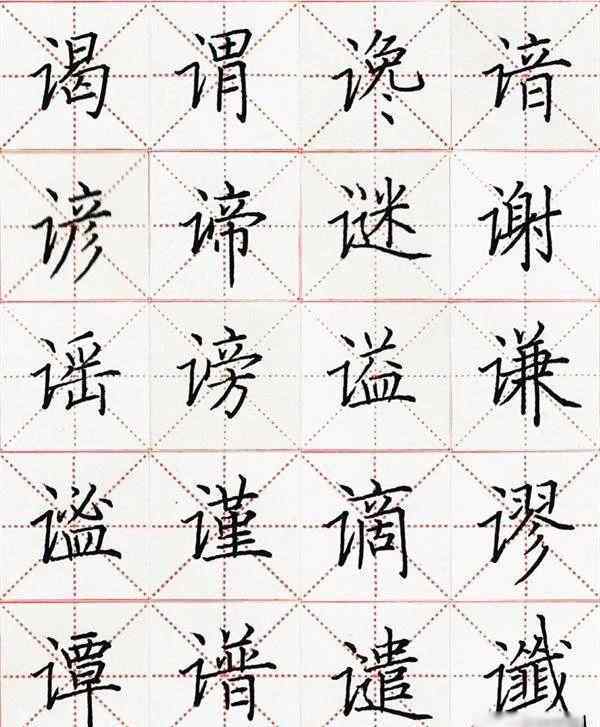 谒谓谗谙
谚谛谜谢
谣谤谥谦
谧谨谪谬
谭谱谴谶